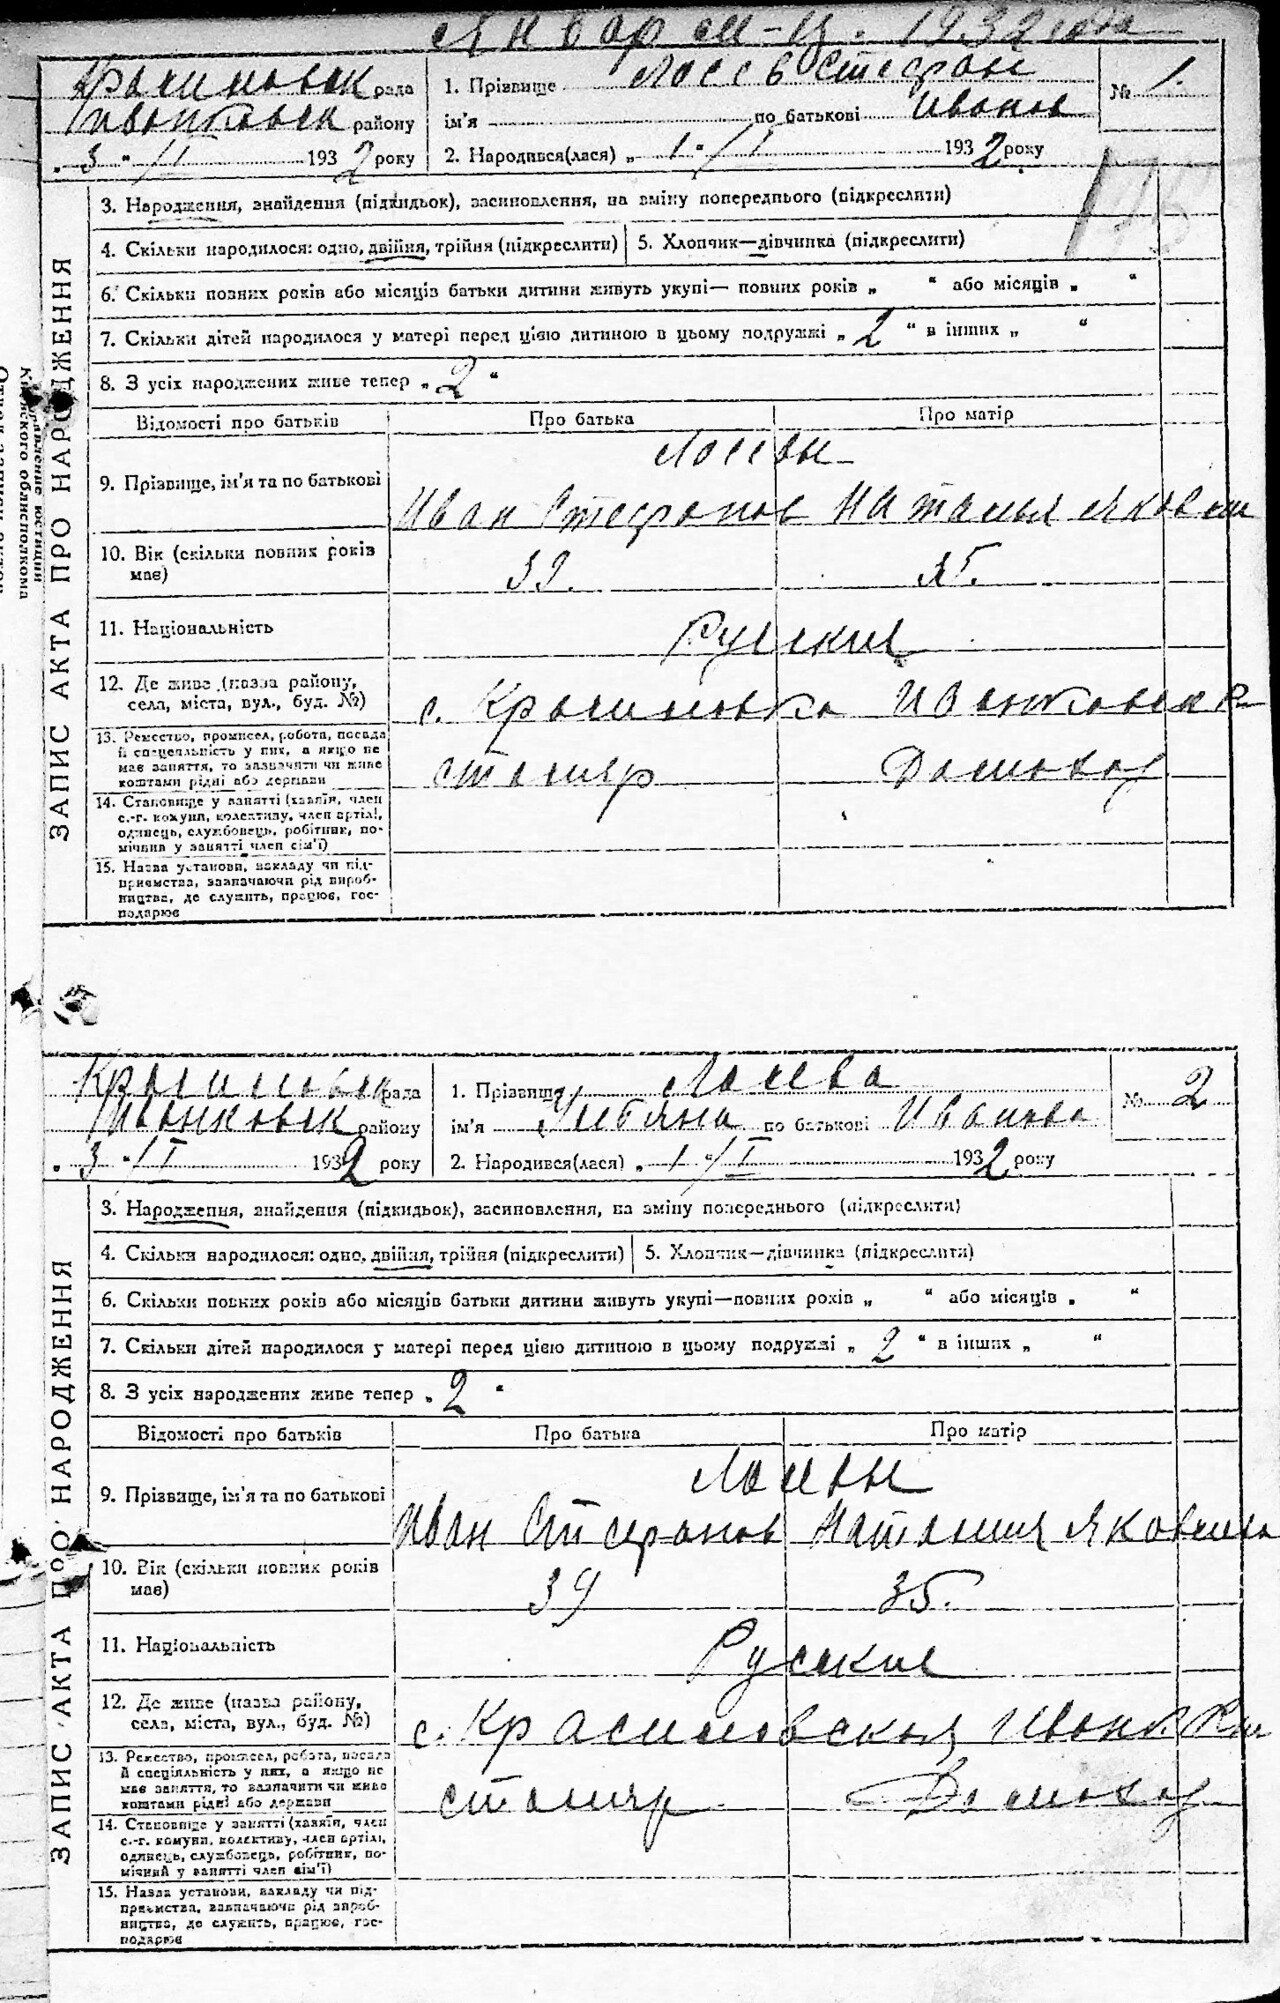 Январ м-ц. 1932 года
Красиловск рада
Иванковск району
„ 3 " / II 1932 року
1. Прізвище Лосев Стефан
ім'я по батькові Иванов
2. Народився(лася) „ 1 " / I 1932 року
№ 1.
ЗАПИС АКТА ПРО НАРОДЖЕННЯ
3. Народження, знайдення (підкидьок), засиновлення, на зміну попереднього (підкреслити)
4. Скільки народилося: одно, двійня, трійня (підкреслити)
5. Хлопчик—дівчинка (підкреслити)
6. Скільки повних років або місяців батьки дитини живуть укупі— повних років „ " або місяців „ "
7. Скільки дітей народилося у матері перед цією дитиною в цьому подружжі „ 2 " в інших „ "
8. З усіх народжених живе тепер „ 2 "
Відомості про батьків
Про батька
Про матір
9. Прізвище, ім'я та по батькові
Лосевы
Иван Стефанов
Наталья Яковл
10. Вік (скільки повних років має)
39.
35.
11. Національність
Русские
12. Де живе (назва району, села, міста, вул., буд. №)
с. Красиловка Иванковск
13. Ремество, промисел, робота, посада й спеціяльність у них, а якщо не має заняття, то зазначити чи живе коштами рідні або держави
столяр
Домохоз
14. Становище у занятті (хазяїн, член с.-г. комуни, колективу, член артілі, одинець, службовець, робітник, помічник у занятті член сім'ї)
15. Назва установи, закладу чи підприємства, зазначаючи рід виробництва, де служить, працює, господарює
Красиловск рада
Иванковск району
„ 3 " / I 1932 року
1. Прізвище Лосева
ім'я Ульяна по батькові Иванова
2. Народився(лася) „ 1 " / I 1932 року
№ 2
ЗАПИС АКТА ПРО НАРОДЖЕННЯ
3. Народження, знайдення (підкидьок), засиновлення, на зміну попереднього (підкреслити)
4. Скільки народилося: одно, двійня, трійня (підкреслити)
5. Хлопчик—дівчинка (підкреслити)
6. Скільки повних років або місяців батьки дитини живуть укупі—повних років „ " або місяців „ "
7. Скільки дітей народилося у матері перед цією дитиною в цьому подружжі „ 2 " в інших „ "
8. З усіх народжених живе тепер „ 2 "
Відомості про батьків
Про батька
Про матір
9. Прізвище, ім'я та по батькові
Лосевы
Иван Стефанов
Наталия Яковлева
10. Вік (скільки повних років має)
39
35.
11. Національність
Русские
12. Де живе (назва району, села, міста, вул., буд. №)
с. Красиловская
13. Ремество, промисел, робота, посада й спеціяльність у них, а якщо не має заняття, то зазначити чи живе коштами рідні або держави
столяр
Домохоз
14. Становище у занятті (хазяїн, член с.-г. комуни, колективу, член артілі, одинець, службовець, робітник, помічний у занятті член сім'ї)
15. Назва установи, закладу чи підприємства, зазначаючи рід виробництва, де служить, працює, господарює